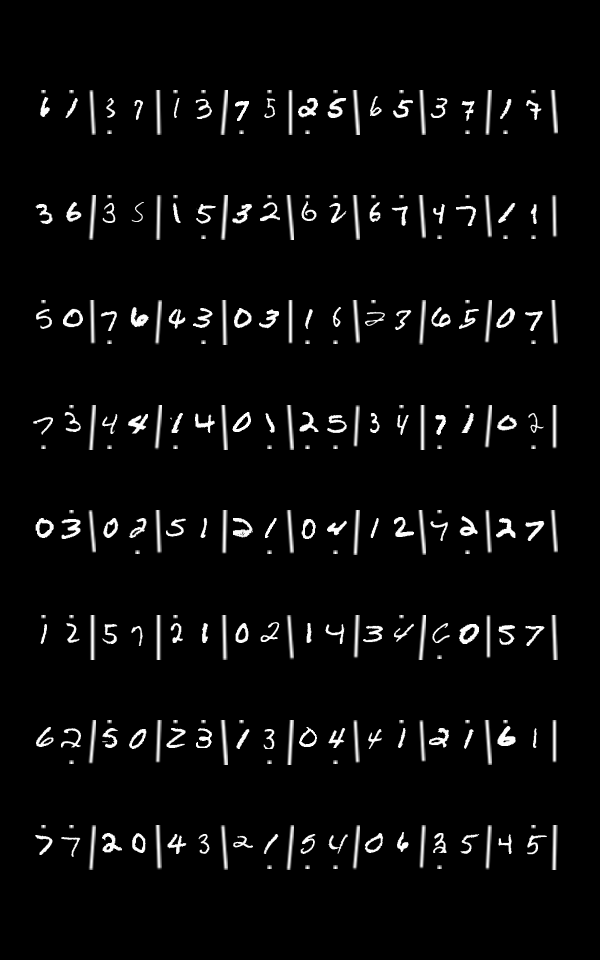 6 1 | 3 7 | 1 3 | 7 5 | 2 5 | 6 5 | 3 7 | 1 7 |
3 6 | 3 5 | 1 5 | 3 2 | 6 2 | 6 7 | 4 7 | 1 1 |
5 0 | 7 6 | 4 3 | 0 3 | 1 6 | 2 3 | 6 5 | 0 7 |
7 3 | 4 4 | 1 4 | 0 1 | 2 5 | 3 4 | 7 1 | 0 2 |
0 3 | 0 2 | 5 1 | 2 1 | 0 4 | 1 2 | 7 2 | 2 7 |
1 2 | 5 7 | 2 1 | 0 2 | 1 4 | 3 4 | 6 0 | 5 7 |
6 2 | 5 0 | 2 3 | 1 3 | 0 4 | 4 1 | 2 1 | 6 1 |
7 7 | 2 0 | 4 3 | 2 1 | 5 4 | 0 6 | 3 5 | 4 5 |